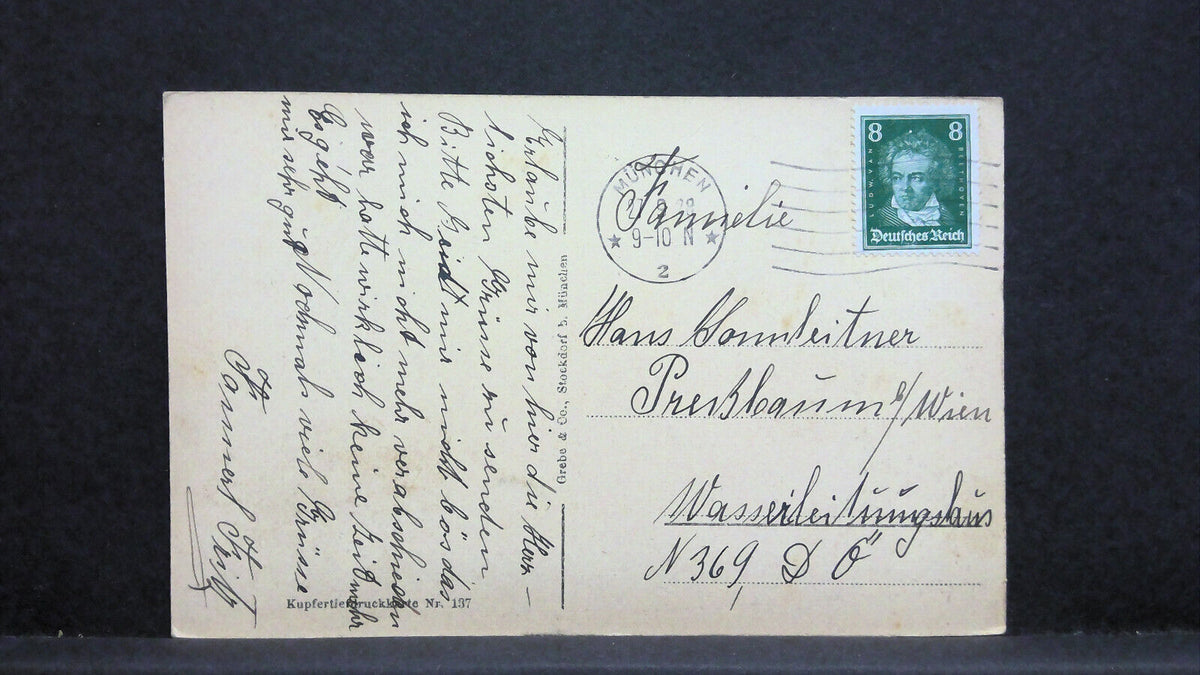 Erlaube mir von hier die Herz-
lichsten Grüsse zu senden
Bitte Seidt mir nicht bös das
ich mich nicht mehr verabschieden
war hatte wirklich keine Zeit mehr
Es geht
mir sehr gut Nochmals viele Grüsse
Fritz
Kupfertiefdruckkarte Nr. 137
Grebe & Co., Stockdorf b. München
MÜNCHEN
9-10 N
2
8 8
LUDW. VAN BEETHOVEN
Deutsches Reich
Famielie
Hans Sonnleitner
Preßbaum b/Wien
Wasserleitungshus
N 369, D Ö